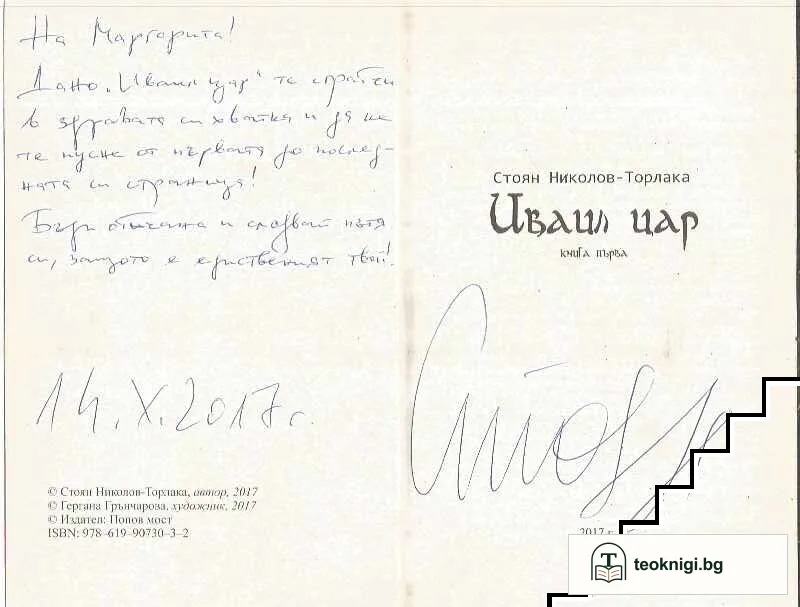 На Маргарита!
Дано "Иваил цар" те сграбчи
в здравата си хватка и да не
те пусне от първата до послед-
ната си страница!
Бъди обичана и следвай пътя
си, защото е единственият твой!
14.X.2017 г.
© Стоян Николов-Торлака, автор, 2017
© Гергана Грънчарова, художник, 2017
© Издател: Попов мост
ISBN: 978–619–90730–3–2
Стоян Николов-Торлака
Иваил цар
книга първа
2017 г.
teoknigi.bg